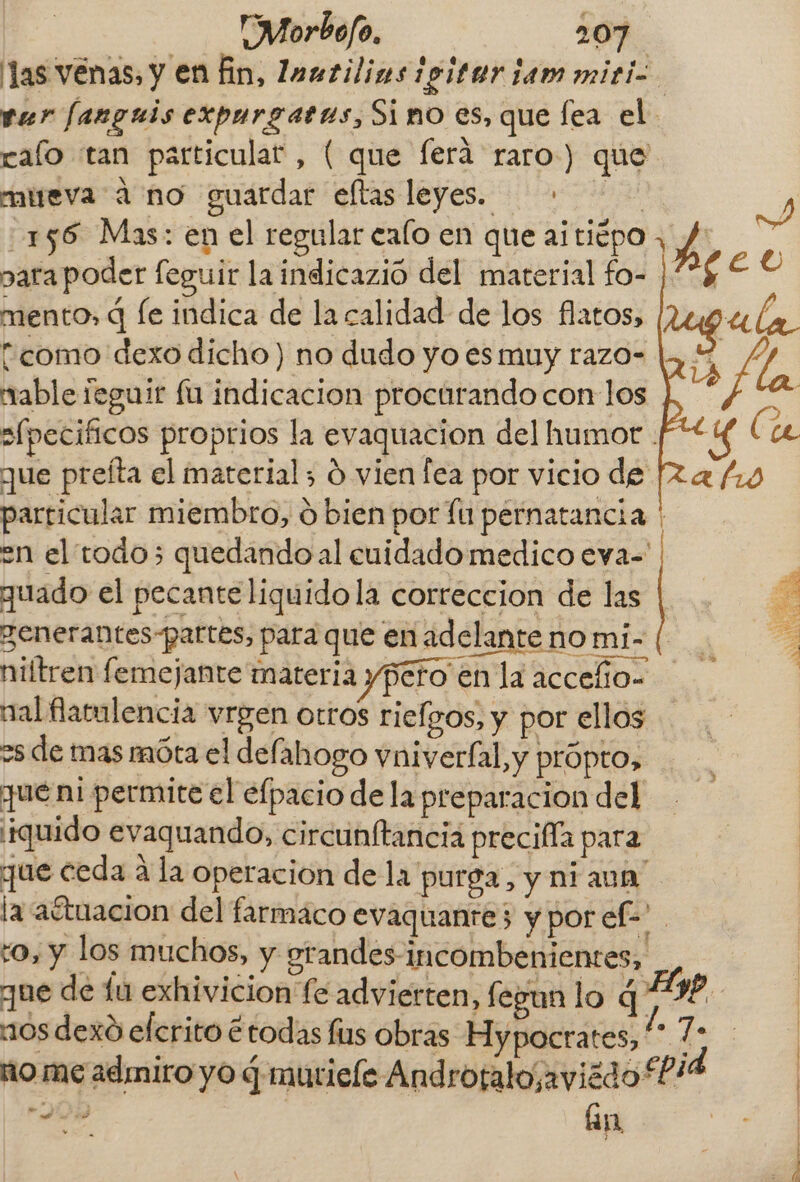 Morboſo. 207
las venas, y en fin, Inutilius igitur iam miti-
tur ſanguis expurgatus, Si no es, que ſea el
caſo tan particular, ( que ſerà raro ) que
mueva à no guardar eſtas leyes.
156 Mas: en el regular caſo en que ai tiẽpo
para poder ſeguir la indicaziõ del material fo-
mento, q̃ ſe indica de la calidad de los flatos,
( como dexo dicho ) no dudo yo es muy razo-
nable ſeguir ſu indicacion procurando con los
eſpecificos proprios la evaquacion del humor
que preſta el material; ò vien ſea por vicio de
particular miembro, ò bien por ſu pernatancia
en el todo; quedando al cuidado medico eva-
quado el pecante liquido la correccion de las
generantes-partes, para que en adelante no mi-
niſtren ſemejante materia ypero en la acceſio-
nal flatulencia vrgen otros rieſgos, y por ellos
es de mas mõta el deſahogo vniverſal, y prõpto,
que ni permite el eſpacio de la preparacion del
liquido evaquando, circunſtancia preciſſa para
que ceda à la operacion de la purga, y ni aun
la actuacion del farmaco evaquante; y por eſ-
to, y los muchos, y grandes incombenientes,
que de ſu exhivicion ſe advierten, ſegun lo q̃
nos dexò eſcrito ẽ todas ſus obras Hypocrates,
no me admiro yo q̃ murieſe Androtalo, aviẽdo
ſin
Hyp.
l. 7.
Epid